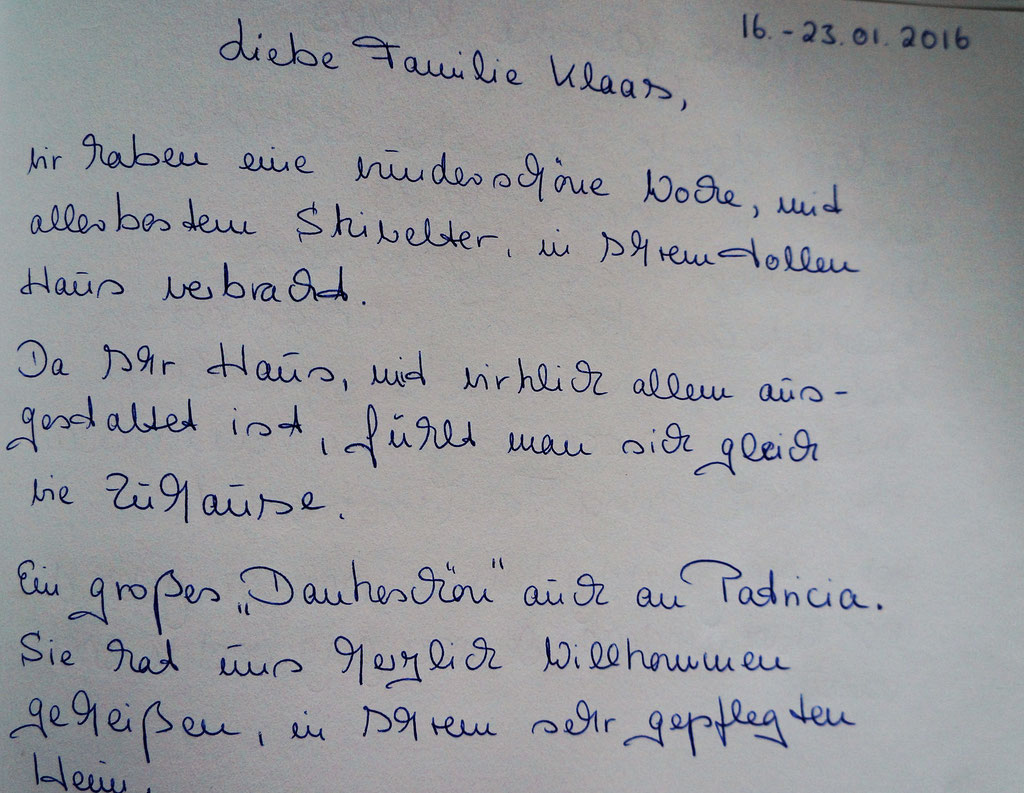 16. - 23.01.2016
Liebe Familie Klaas,
wir haben eine wunderschöne Woche, mit
allerbestem Skiwetter, in Ihrem tollen
Haus verbracht.
Da Ihr Haus, mit wirklich allem aus-
gestattet ist, fühlt man sich gleich
wie Zuhause.
Ein großes „Dankeschön" auch an Patricia.
Sie hat uns herzlich Willkommen
geheißen, in Ihrem sehr gepflegten
Heim.